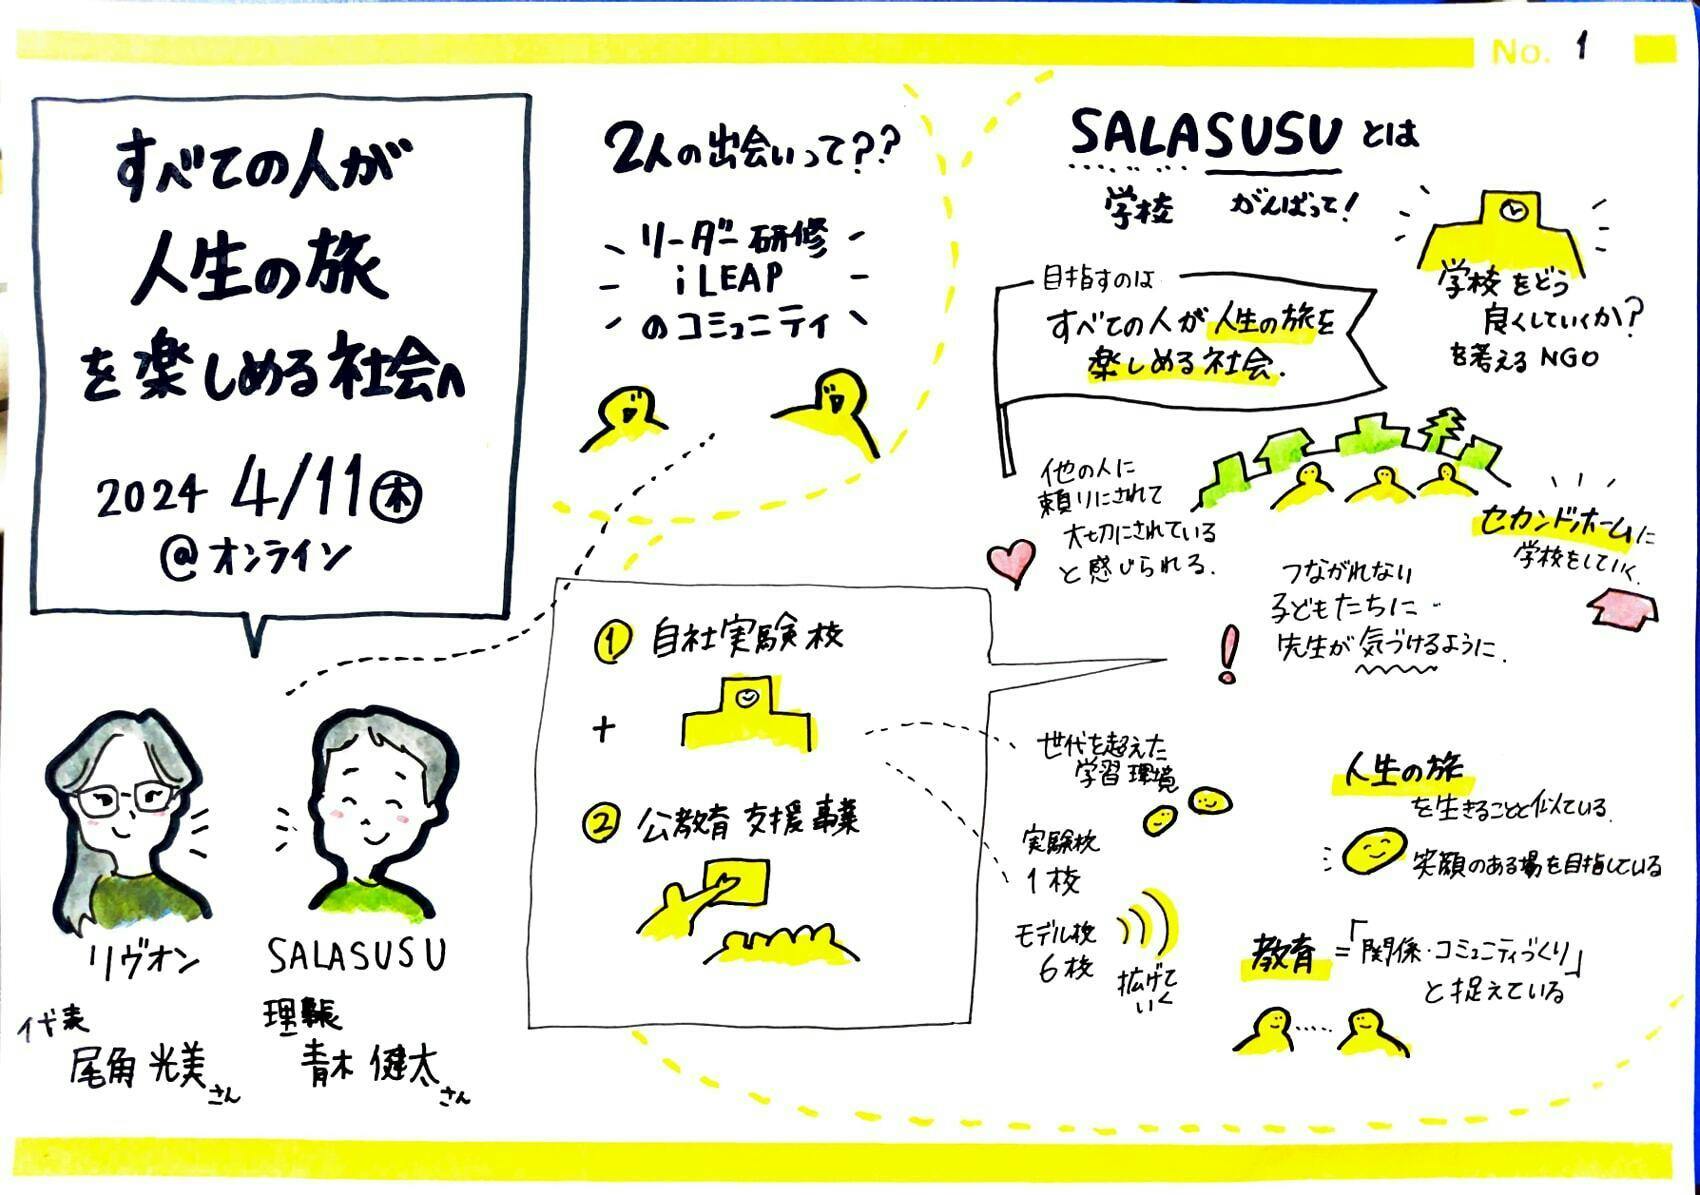 No. 1
すべての人が
人生の旅
を楽しめる社会へ
2024 4/11㊍
@オンライン
リヴオン
代表
尾角光美さん
SALASUSU
理事長
青木健太さん
2人の出会いって??
リーダー研修
iLEAP
のコミュニティ
SALASUSUとは
学校 がんばって!
学校をどう
良くしていくか?
を考えるNGO
目指すのは
すべての人が人生の旅を
楽しめる社会.
他の人に
頼りにされて
大切にされている
と感じられる.
セカンドホームに
学校をしていく.
つながれない
子どもたちに
先生が気づけるように.
① 自社実験校
+
② 公教育支援事業
世代を超えた
学習環境
実験校
1校
モデル校
6校
拡げて
いく
人生の旅
を生きることと似ている.
笑顔のある場を目指している
教育=「関係・コミュニティづくり」
と捉えている